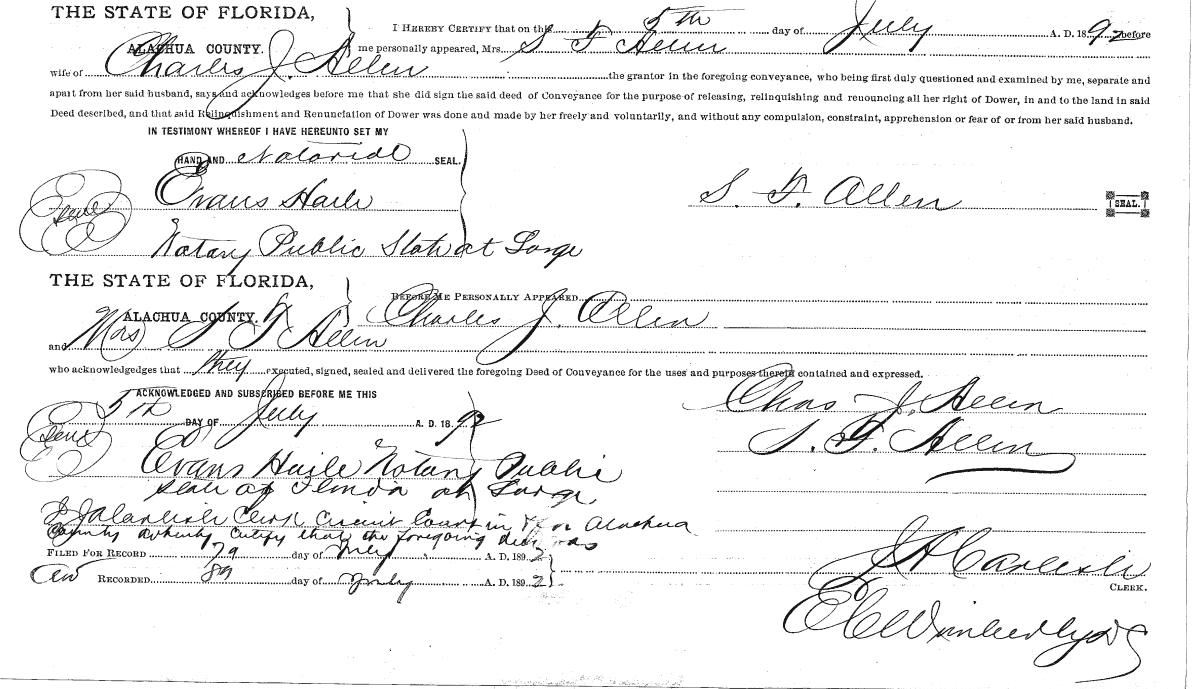 THE STATE OF FLORIDA,
ALACHUA COUNTY.
I HEREBY CERTIFY that on this 5th day of July A. D. 1892 before
me personally appeared, Mrs. S F Allen
wife of Charles J. Allen the grantor in the foregoing conveyance, who being first duly questioned and examined by me, separate and
apart from her said husband, says and acknowledges before me that she did sign the said deed of Conveyance for the purpose of releasing, relinquishing and renouncing all her right of Dower, in and to the land in said
Deed described, and that said Relinquishment and Renunciation of Dower was done and made by her freely and voluntarily, and without any compulsion, constraint, apprehension or fear of or from her said husband.
IN TESTIMONY WHEREOF I HAVE HEREUNTO SET MY
HAND AND Notarial SEAL.
Evans Haile
S. F. Allen
SEAL.
Notary Public State at Large
THE STATE OF FLORIDA,
ALACHUA COUNTY.
BEFORE ME PERSONALLY APPEARED Charles J. Allen
and Mrs S F Allen
who acknowledgdes that they executed, signed, sealed and delivered the foregoing Deed of Conveyance for the uses and purposes therein contained and expressed.
ACKNOWLEDGED AND SUBSCRIBED BEFORE ME THIS
5th DAY OF July A. D. 1892
Chas J. Allen
S. F. Allen
Evans Haile Notary Public
State of Florida at Large
I J A Carlisle Clerk Circuit Court in & for Alachua
County do hereby certify that the foregoing deed was
FILED FOR RECORD 7th day of July A. D. 1892
RECORDED 8th day of July A. D. 1892
J A Carlisle
CLERK.
E C Wimberly DC